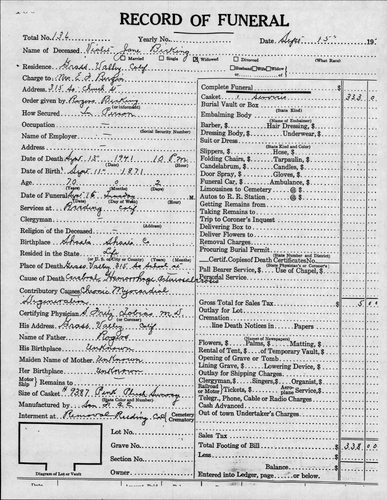 RECORD OF FUNERAL
Total No. 136 Yearly No. Date Sept. 15 19
Name of Deceased Violet Jane
Married Single Widowed Divorced (What Race)
Residence Grass Valley Calif Husband Wife Widow of
Charge to Mrs. E. F.
Address 315 So. Church St.
Order given by
How Secured In Person
Occupation
(Social Security Number)
Name of Employer
Date of Death Sept. 12 1941 10 P.M.
Date of Birth Sept. 11 1871
Age 70 0 2
(Years) (Months) (Days)
Date of Funeral Sept 16
(Date) (Day of Week) (Hour)
Services at Redding Calif
Clergyman
Religion of the Deceased
Birthplace Shasta Shasta Co.
Resided in the State Life
Place of Death Grass Valley 315 So
Cause of Death Cerebral Hemorrhage
Contributory Causes Chronic Myocardial
Degeneration
Certifying Physician
(or Coroner)
His Address Grass Valley Calif
Name of Father
His Birthplace Unknown
Maiden Name of Mother Unknown
Her Birthplace Unknown
Motor Ship Remains to
Size of Casket
(State Color and Number)
Manufactured by
Interment at Redding Calif Cemetery Crematory
Lot No.
Grave No.
Section No.
Owner
Diagram of Lot or Vault
Complete Funeral
Casket 333.0
Burial Vault or Box
(State Kind)
Embalming Body
(Name of Embalmer)
Barber, $ Hair Dressing, $
Dressing Body, $ Underwear, $
Suit or Dress
(State Kind and Color)
Slippers, $ Hose, $
Folding Chairs, $ Tarpaulin, $
Candelabrum, $ Candles, $
Door Spray, $ Gloves, $
Funeral Car, $ Ambulance, $
Limousines to Cemetery @ $
Autos to R. R. Station @ $
Getting Remains from
Taking Remains to
Trip to Coroner's Inquest
Delivering Box to
Deliver Flowers to
Removal Charges
Procuring Burial Permit
(State Number and District)
Certif. Copies of Death Certificates No.
(State Physician's or Coroner's)
Pall Bearer Service, $ Use of Chapel, $
Personal Service
Gross Total for Sales Tax 5
Outlay for Lot
Cremation
line Death Notices in Papers
(Names of Newspapers)
Flowers, $ Palms, $ Matting, $
Rental of Tent, $ of Temporary Vault, $
Opening of Grave or Tomb
Lining Grave, $ Lowering Device, $
Outlay for Shipping Charges
Clergyman, $ Singers, $ Organist, $
Railroad or Motor Tickets, $ Aeroplane Service, $
Telegr., Phone, Cable or Radio Charges
Cash Advanced
Out of town Undertaker's Charges
Sales Tax
Total Footing of Bill 338.00
Less
Balance
Entered into Ledger, page or below